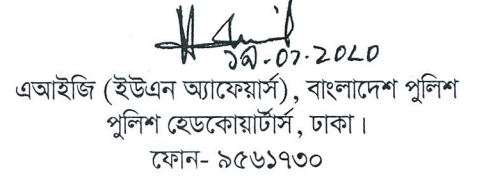 এআইজি (ইউএন অ্যাফেয়ার্স), বাংলাদেশ পুলিশ
পুলিশ হেডকোয়ার্টার্স, ঢাকা।
ফোন- ৯৫৬১৭৩০